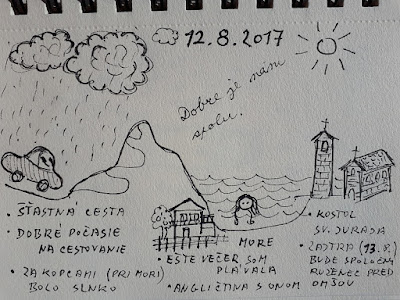 12.8.2017
Dobre je nám
spolu.
• ŠŤASTNÁ CESTA
• DOBRÉ POČASIE
NA CESTOVANIE
• ZA KOPCAMI (PRI MORI)
BOLO SLNKO
MORE
• EŠTE VEČER SOM
PLÁVALA
• ANGLIČTINA S ONOM
• KOSTOL
SV. JURAJA
• ZAJTRA (13.8.)
BUDE SPOLOČNÝ
RUŽENEC PRED
OMŠOU